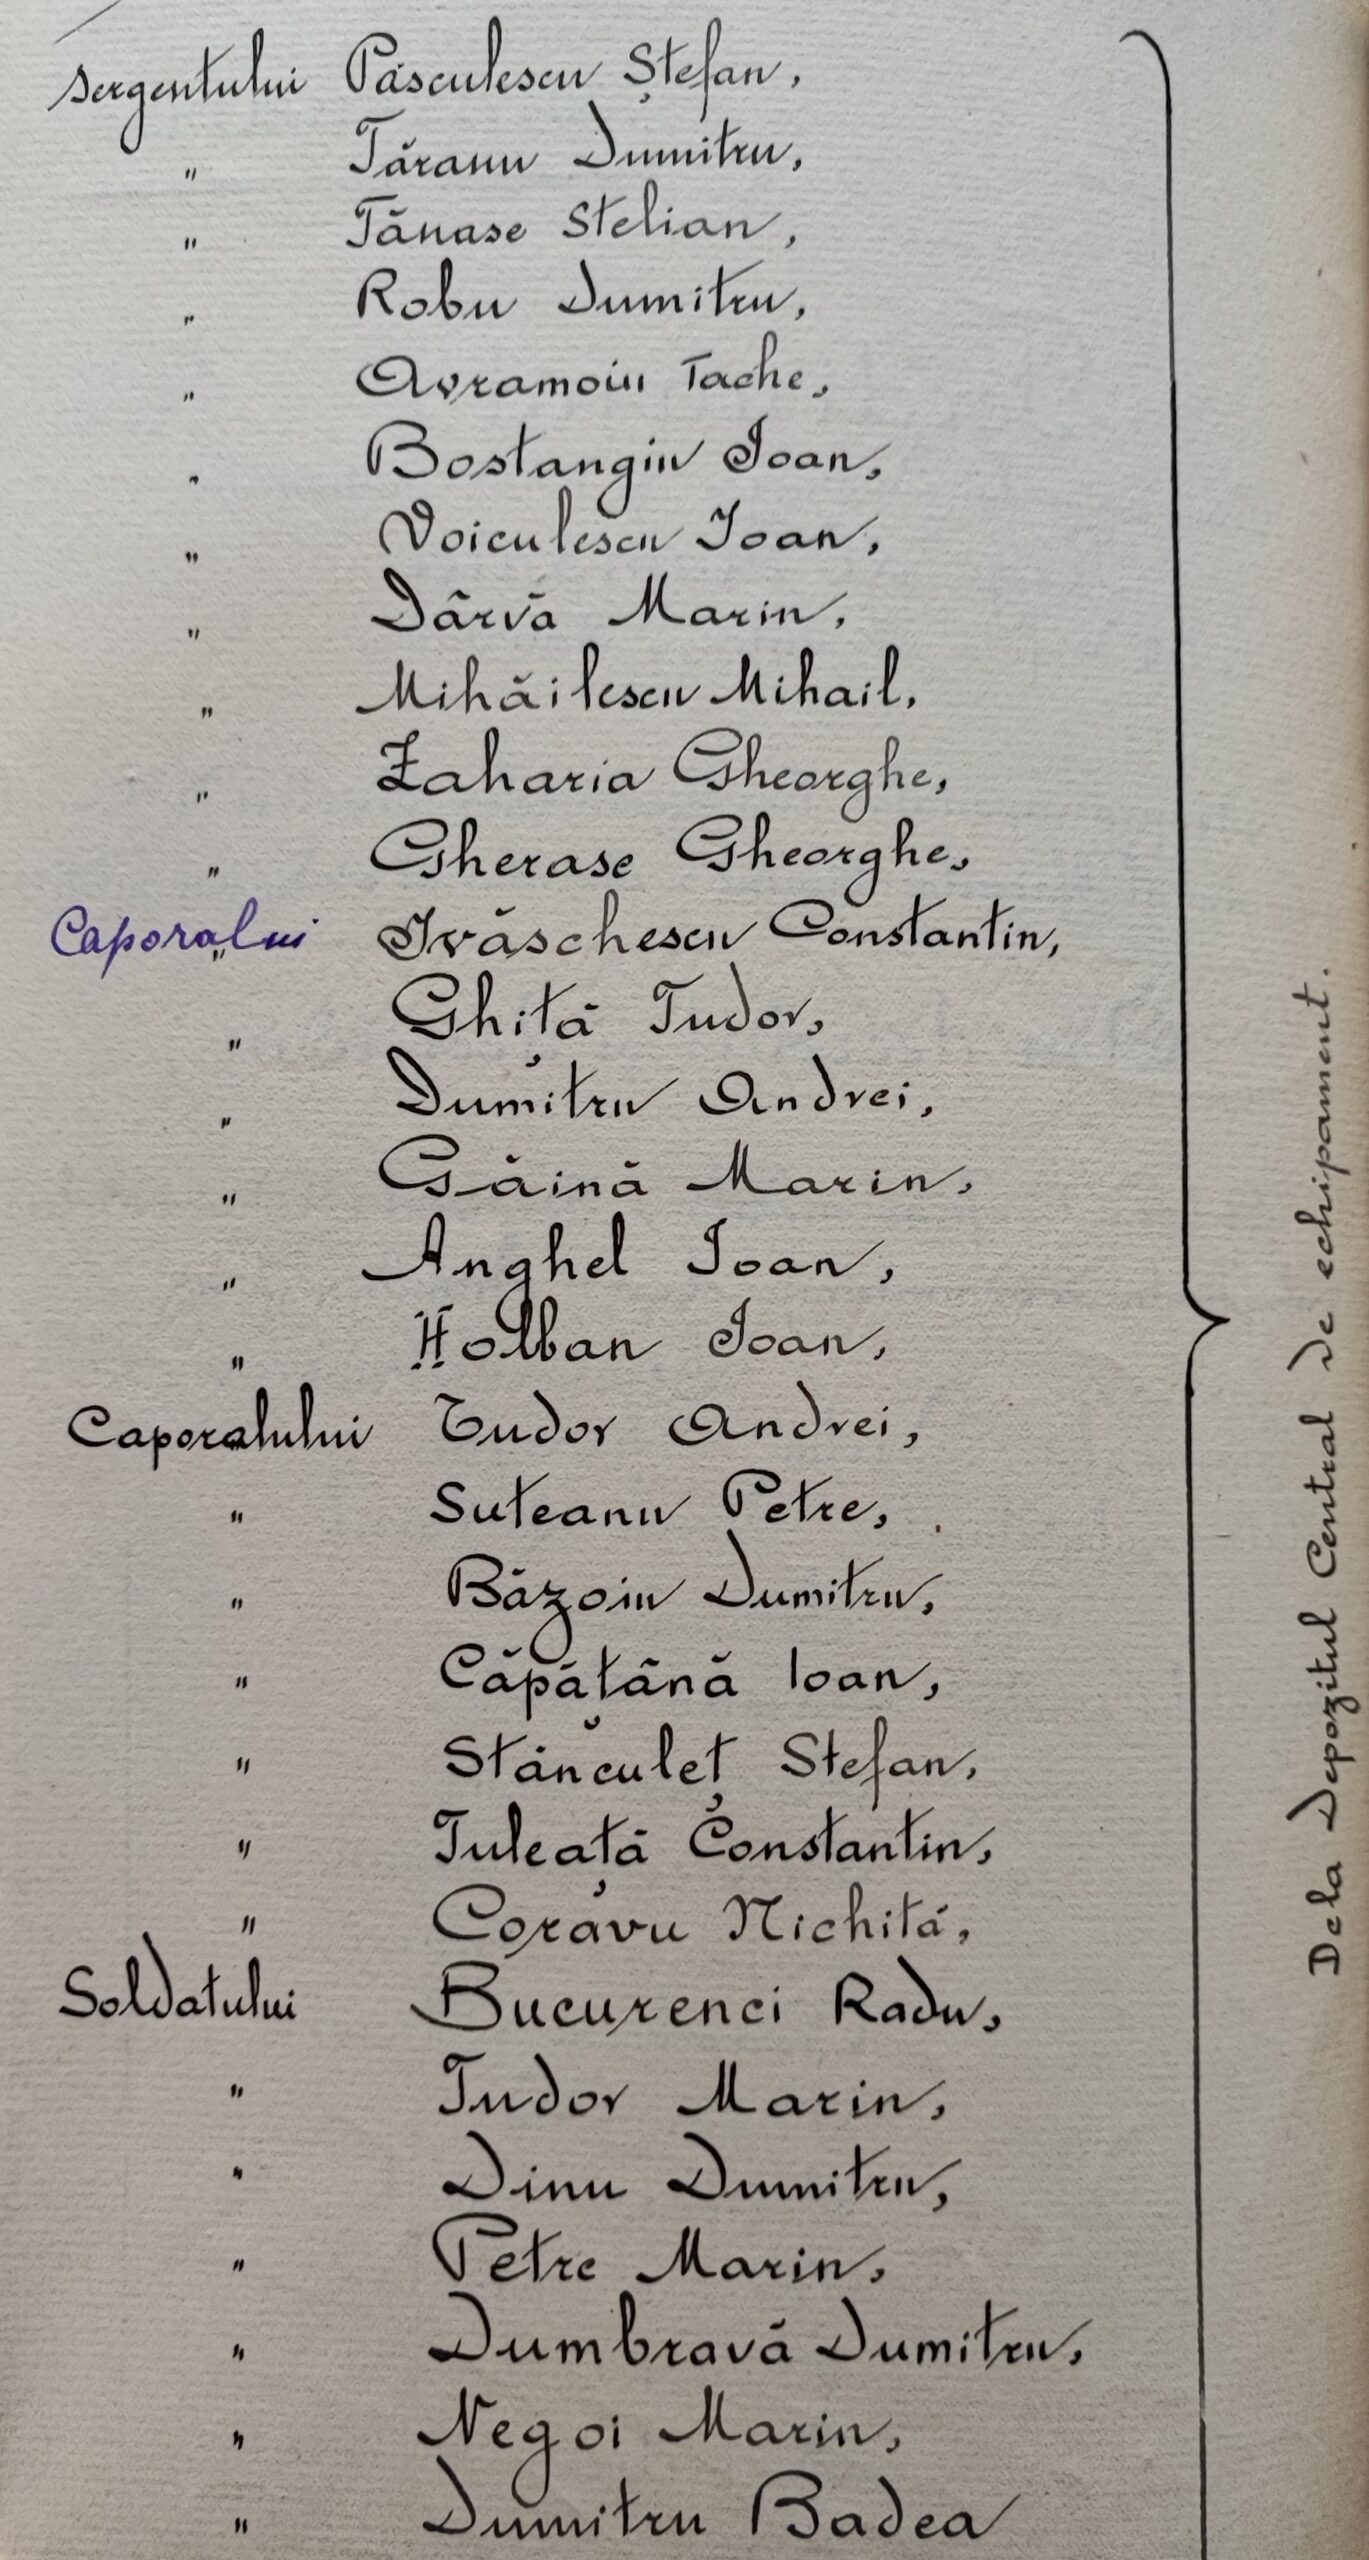 Sergentului Păsculescu Ștefan,
" Tăranu Dumitru,
" Tănase Stelian,
" Robu Dumitru,
" Avramoiu Tache,
" Bostangiu Ioan,
" Voiculescu Ioan,
" Dârvă Marin,
" Mihăilescu Mihail,
" Zaharia Gheorghe,
" Gherase Gheorghe,
Caporalui " Ivăschescu Constantin,
" Ghiță Tudor,
" Dumitru Andrei,
" Găină Marin,
" Anghel Ioan,
" Holban Ioan,
Caporalului Tudor Andrei,
" Suteanu Petre,
" Băzoiu Dumitru,
" Căpățână Ioan,
" Stănculeț Stefan,
" Tuleață Constantin,
" Coravu Nichita,
Soldatului Bucurenci Radu,
" Tudor Marin,
" Dinu Dumitru,
" Petre Marin,
" Dumbravă Dumitru,
" Negoi Marin,
" Dumitru Badea
Dela Depozitul Central de echipament.